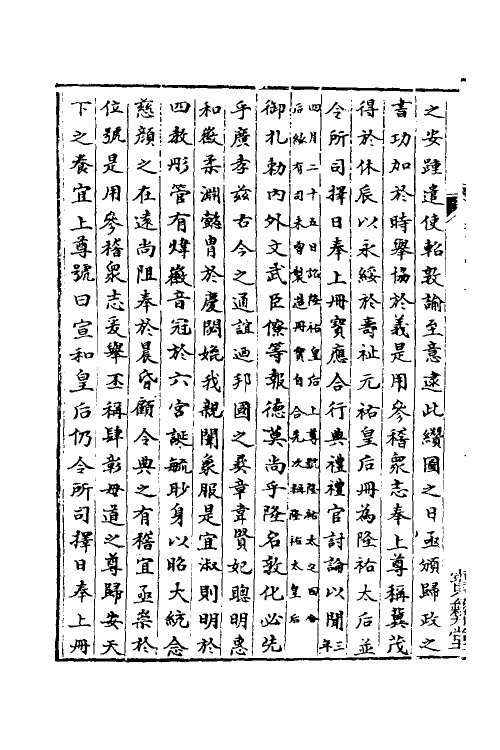 之安踵遣使軺敦諭至意逮此纘圖之日亟頒歸政之
書功加於時舉協於義是用參稽衆志奉上尊稱冀茂
得於休辰以永綏於壽祉元祐皇后冊為隆祐太后並
令所司擇日奉上冊寶應合行典禮禮官討論以聞三年
四月二十五日詔隆祐皇后上尊號隆祐太
后緣有司未曾製造冊寶自合先次稱隆祐太皇后
御札勅內外文武臣僚等報德莫尚乎隆名敦化必先
乎廣孝兹古今之通誼迺邦國之彞章韋賢妃聰明惠
和徽柔淵懿冑於慶閥媲我親闈象服是宜淑則明於
四教彤管有煒徽音冠於六宮誕毓眇身以昭大統念
慈顔之在遠尚阻奉於晨昏顧令典之有稽宜亟崇於
位號是用參稽衆志爰舉丕稱肆彰母道之尊歸安天
下之養宜上尊號曰宣和皇后仍令所司擇日奉上冊